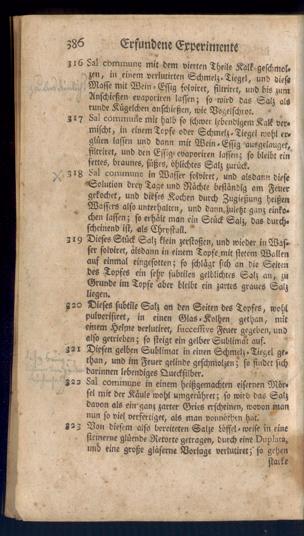 386 Erfundene Experimente
316 Sal commune mit dem vierten Theile Kalk geschmol-
zen, in einem verlutirten Schmelz-Tiegel, und diese
Masse mit Wein-Essig solviret, filtriret, und bis zum
Anschießen evaporiren lassen; so wird das Salz als
runde Kügelchen anschießen, wie Vogelschrot.
317 Sal commune mit halb so schwer lebendigem Kalk ver-
mischt, in einem Topfe oder Schmelz-Tiegel wohl er-
glüen lassen und dann mit Wein-Essig ausgelauget,
filtriret, und den Essig evaporiren lassen; so bleibt ein
fettes, braunes, süßes, öhlichtes Salz zurück.
318 Sal commune in Wasser solviret, und alsdann diese
Solution drey Tage und Nächte beständig am Feuer
gekochet, und dieses Kochen durch Zugießung heißen
Wassers also unterhalten, und dann zuletzt ganz einko-
chen lassen; so erhält man ein Stück Salz, das durch-
scheinend ist, als Chrystall.
319 Dieses Stück Salz klein gestoßen, und wieder in Was-
ser solviret, alsdann in einem Topfe mit stetem Wallen
auf einmal eingesotten; so schlägt sich an die Seiten
des Topfes ein sehr subtiles gelblichtes Salz an, zu
Grunde im Topfe aber bleibt ein zartes graues Salz
liegen.
320 Dieses subtile Salz an den Seiten des Topfes, wohl
pulverisiret, in einen Glas-Kolben gethan, mit
einem Helme verlutiret, successive Feuer gegeben, und
also getrieben; so steigt ein gelber Sublimat auf.
321 Diesen gelben Sublimat in einen Schmelz-Tiegel ge-
than, und im Feuer gelinde geschmolzen; so findet sich
darinnen lebendiges Quecksilber.
322 Sal commune in einem heißgemachten eisernen Mör-
sel mit der Käule wohl umgerühret; so wird das Salz
davon als ein ganz zarter Gries erscheinen, wovon man
nun so viel verfertiget, als man vonnöthen hat.
323 Von diesem also bereiteten Salze Löffel-weise in eine
steinerne glüende Retorte getragen, durch eine Duplata,
und eine große gläserne Vorlage verlutiret; so gehen
starke